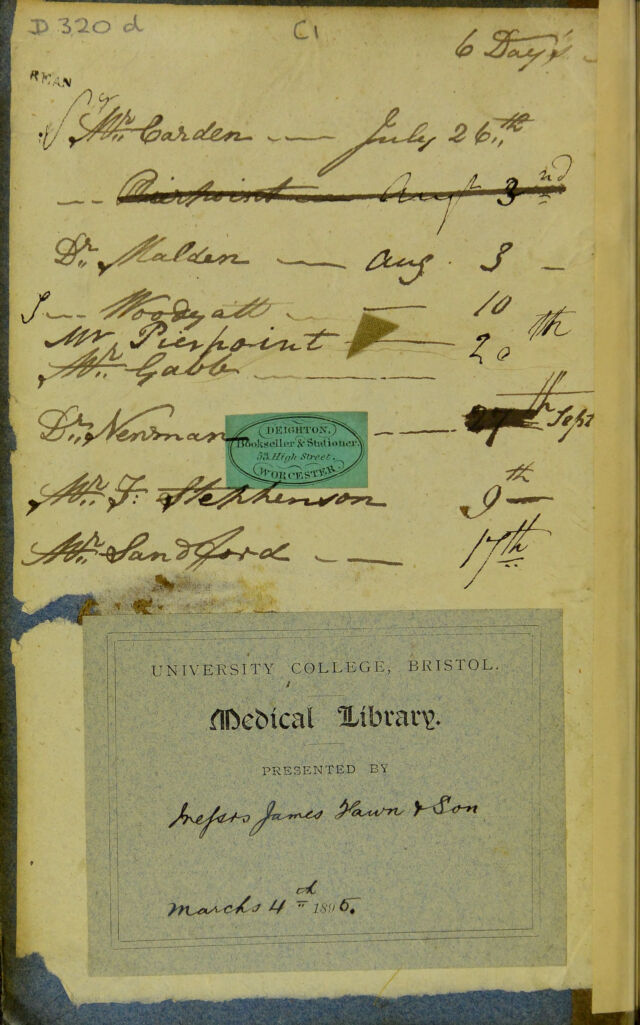 D 320 d
C1
6 Day's
RMAN
Mr. Carden — July 26th
Pierpoint — Augt 3nd
Dr. Malden — Aug. 3 —
Woodyatt — 10
Mr Pierpoint — 20th
Mr. Gabb —
Dr. Newman — 27th Sept
DEIGHTON,
Bookseller & Stationer,
53, High Street,
WORCESTER.
Mr. F: Stephenson 9th
Mr. Sandford — 17th
UNIVERSITY COLLEGE, BRISTOL.
Medical Library.
PRESENTED BY
Messrs James Fawn & Son
March 4th 1895.